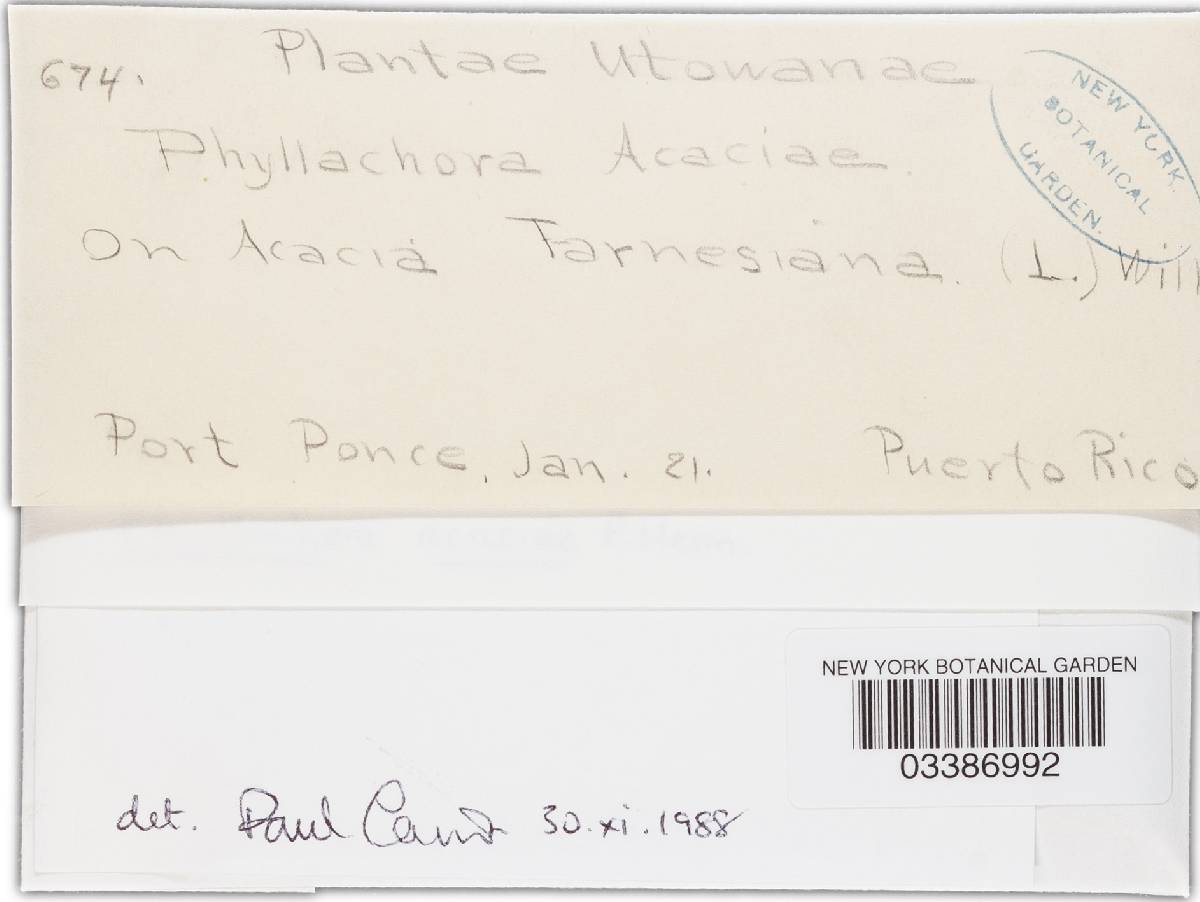 674. Plantae Utowanae
Phyllachora Acaciae.
On Acacia Farnesiana. (L.) Will
Port Ponce, Jan. 21. Puerto Rico
NEW YORK
BOTANICAL
GARDEN.
NEW YORK BOTANICAL GARDEN
03386992
det. Paul Cannon 30.xi.1988